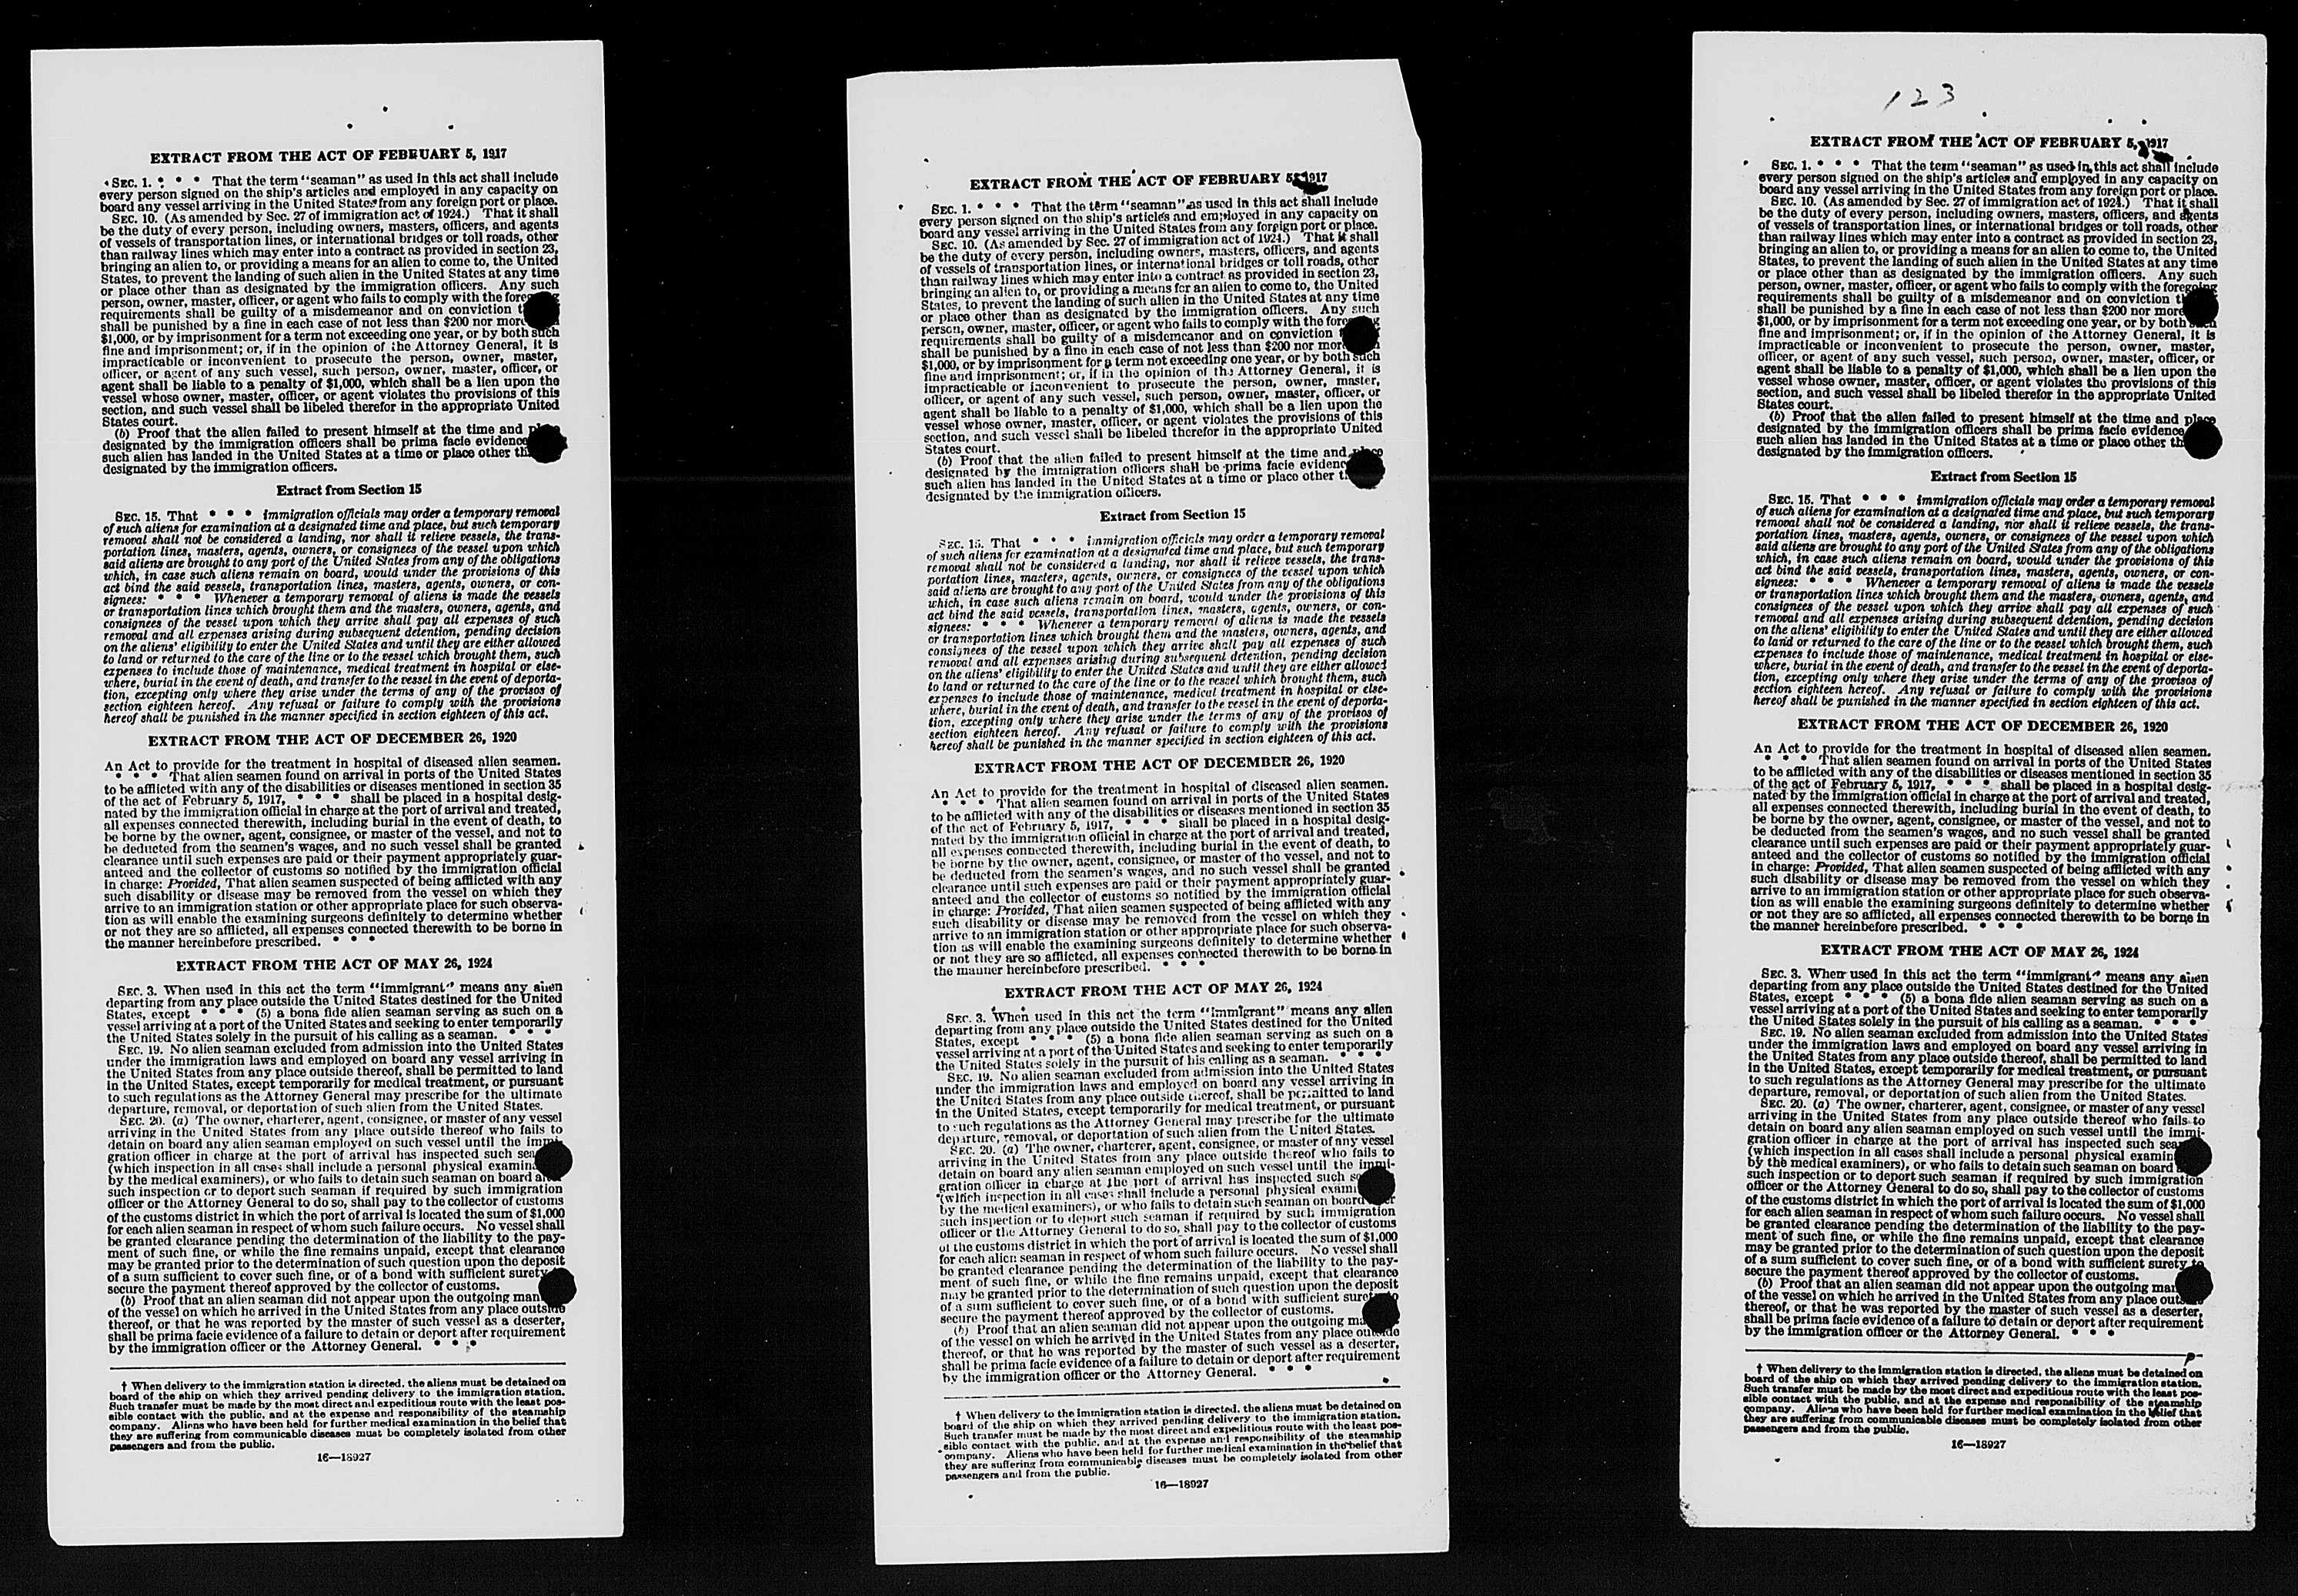 EXTRACT FROM THE ACT OF FEBRUARY 5, 1917
SEC. 1. * * * That the term "seaman" as used in this act shall include
every person signed on the ship's articles and employed in any capacity on
board any vessel arriving in the United States from any foreign port or place.
SEC. 10. (As amended by Sec. 27 of immigration act of 1924.) That it shall
be the duty of every person, including owners, masters, officers, and agents
of vessels of transportation lines, or international bridges or toll roads, other
than railway lines which may enter into a contract as provided in section 23,
bringing an alien to, or providing a means for an alien to come to, the United
States, to prevent the landing of such alien in the United States at any time
or place other than as designated by the immigration officers. Any such
person, owner, master, officer, or agent who fails to comply with the
requirements shall be guilty of a misdemeanor and on conviction
shall be punished by a fine in each case of not less than $200 nor more
$1,000, or by imprisonment for a term not exceeding one year, or by both such
fine and imprisonment; or, if in the opinion of the Attorney General, it is
impracticable or inconvenient to prosecute the person, owner, master,
officer, or agent of any such vessel, such person, owner, master, officer, or
agent shall be liable to a penalty of $1,000, which shall be a lien upon the
vessel whose owner, master, officer, or agent violates the provisions of this
section, and such vessel shall be libeled therefor in the appropriate United
States court.
(b) Proof that the alien failed to present himself at the time and place
designated by the immigration officers shall be prima facie evidence
such alien has landed in the United States at a time or place other
designated by the immigration officers.
Extract from Section 15
SEC. 15. That * * * immigration officials may order a temporary removal
of such aliens for examination at a designated time and place, but such temporary
removal shall not be considered a landing, nor shall it relieve vessels, the trans-
portation lines, masters, agents, owners, or consignees of the vessel upon which
said aliens are brought to any port of the United States from any of the obligations
which, in case such aliens remain on board, would under the provisions of this
act bind the said vessels, transportation lines, masters, agents, owners, or con-
signees: * * * Whenever a temporary removal of aliens is made the vessels
or transportation lines which brought them and the masters, owners, agents, and
consignees of the vessel upon which they arrive shall pay all expenses of such
removal and all expenses arising during subsequent detention, pending decision
on the aliens' eligibility to enter the United States and until they are either allowed
to land or returned to the care of the line or to the vessel which brought them, such
expenses to include those of maintenance, medical treatment in hospital or else-
where, burial in the event of death, and transfer to the vessel in the event of deporta-
tion, excepting only where they arise under the terms of any of the provisos of
section eighteen hereof. Any refusal or failure to comply with the provisions
hereof shall be punished in the manner specified in section eighteen of this act.
EXTRACT FROM THE ACT OF DECEMBER 26, 1920
An Act to provide for the treatment in hospital of diseased alien seamen.
* * * That alien seamen found on arrival in ports of the United States
to be afflicted with any of the disabilities or diseases mentioned in section 35
of the act of February 5, 1917, * * * shall be placed in a hospital desig-
nated by the immigration official in charge at the port of arrival and treated,
all expenses connected therewith, including burial in the event of death, to
be borne by the owner, agent, consignee, or master of the vessel, and not to
be deducted from the seamen's wages, and no such vessel shall be granted
clearance until such expenses are paid or their payment appropriately guar-
anteed and the collector of customs so notified by the immigration official
in charge: Provided, That alien seamen suspected of being afflicted with any
such disability or disease may be removed from the vessel on which they
arrive to an immigration station or other appropriate place for such observa-
tion as will enable the examining surgeons definitely to determine whether
or not they are so afflicted, all expenses connected therewith to be borne in
the manner hereinbefore prescribed. * * *
EXTRACT FROM THE ACT OF MAY 26, 1924
SEC. 3. When used in this act the term "immigrant" means any alien
departing from any place outside the United States destined for the United
States, except * * * (5) a bona fide alien seaman serving as such on a
vessel arriving at a port of the United States and seeking to enter temporarily
the United States solely in the pursuit of his calling as a seaman. * * *
SEC. 19. No alien seaman excluded from admission into the United States
under the immigration laws and employed on board any vessel arriving in
the United States from any place outside thereof, shall be permitted to land
in the United States, except temporarily for medical treatment, or pursuant
to such regulations as the Attorney General may prescribe for the ultimate
departure, removal, or deportation of such alien from the United States.
SEC. 20. (a) The owner, charterer, agent, consignee, or master of any vessel
arriving in the United States from any place outside thereof who fails to
detain on board any alien seaman employed on such vessel until the immi-
gration officer in charge at the port of arrival has inspected such
(which inspection in all cases shall include a personal physical
by the medical examiners), or who fails to detain such seaman on board after
such inspection or to deport such seaman if required by such immigration
officer or the Attorney General to do so, shall pay to the collector of customs
of the customs district in which the port of arrival is located the sum of $1,000
for each alien seaman in respect of whom such failure occurs. No vessel shall
be granted clearance pending the determination of the liability to the pay-
ment of such fine, or while the fine remains unpaid, except that clearance
may be granted prior to the determination of such question upon the deposit
of a sum sufficient to cover such fine, or of a bond with sufficient surety
secure the payment thereof approved by the collector of customs.
(b) Proof that an alien seaman did not appear upon the outgoing
of the vessel on which he arrived in the United States from any place outside
thereof, or that he was reported by the master of such vessel as a deserter,
shall be prima facie evidence of a failure to detain or deport after requirement
by the immigration officer or the Attorney General. * * *
† When delivery to the immigration station is directed, the aliens must be detained on
board of the ship on which they arrived pending delivery to the immigration station.
Such transfer must be made by the most direct and expeditious route with the least pos-
sible contact with the public, and at the expense and responsibility of the steamship
company. Aliens who have been held for further medical examination in the belief that
they are suffering from communicable diseases must be completely isolated from other
passengers and from the public.
16—18927
EXTRACT FROM THE ACT OF FEBRUARY 5, 1917
SEC. 1. * * * That the term "seaman" as used in this act shall include
every person signed on the ship's articles and employed in any capacity on
board any vessel arriving in the United States from any foreign port or place.
SEC. 10. (As amended by Sec. 27 of immigration act of 1924.) That it shall
be the duty of every person, including owners, masters, officers, and agents
of vessels of transportation lines, or international bridges or toll roads, other
than railway lines which may enter into a contract as provided in section 23,
bringing an alien to, or providing a means for an alien to come to, the United
States, to prevent the landing of such alien in the United States at any time
or place other than as designated by the immigration officers. Any such
person, owner, master, officer, or agent who fails to comply with the
requirements shall be guilty of a misdemeanor and on conviction
shall be punished by a fine in each case of not less than $200 nor more
$1,000, or by imprisonment for a term not exceeding one year, or by both such
fine and imprisonment; or, if in the opinion of the Attorney General, it is
impracticable or inconvenient to prosecute the person, owner, master,
officer, or agent of any such vessel, such person, owner, master, officer, or
agent shall be liable to a penalty of $1,000, which shall be a lien upon the
vessel whose owner, master, officer, or agent violates the provisions of this
section, and such vessel shall be libeled therefor in the appropriate United
States court.
(b) Proof that the alien failed to present himself at the time and place
designated by the immigration officers shall be prima facie evidence
such alien has landed in the United States at a time or place other
designated by the immigration officers.
Extract from Section 15
SEC. 15. That * * * immigration officials may order a temporary removal
of such aliens for examination at a designated time and place, but such temporary
removal shall not be considered a landing, nor shall it relieve vessels, the trans-
portation lines, masters, agents, owners, or consignees of the vessel upon which
said aliens are brought to any port of the United States from any of the obligations
which, in case such aliens remain on board, would under the provisions of this
act bind the said vessels, transportation lines, masters, agents, owners, or con-
signees: * * * Whenever a temporary removal of aliens is made the vessels
or transportation lines which brought them and the masters, owners, agents, and
consignees of the vessel upon which they arrive shall pay all expenses of such
removal and all expenses arising during subsequent detention, pending decision
on the aliens' eligibility to enter the United States and until they are either allowed
to land or returned to the care of the line or to the vessel which brought them, such
expenses to include those of maintenance, medical treatment in hospital or else-
where, burial in the event of death, and transfer to the vessel in the event of deporta-
tion, excepting only where they arise under the terms of any of the provisos of
section eighteen hereof. Any refusal or failure to comply with the provisions
hereof shall be punished in the manner specified in section eighteen of this act.
EXTRACT FROM THE ACT OF DECEMBER 26, 1920
An Act to provide for the treatment in hospital of diseased alien seamen.
* * * That alien seamen found on arrival in ports of the United States
to be afflicted with any of the disabilities or diseases mentioned in section 35
of the act of February 5, 1917, * * * shall be placed in a hospital desig-
nated by the immigration official in charge at the port of arrival and treated,
all expenses connected therewith, including burial in the event of death, to
be borne by the owner, agent, consignee, or master of the vessel, and not to
be deducted from the seamen's wages, and no such vessel shall be granted
clearance until such expenses are paid or their payment appropriately guar-
anteed and the collector of customs so notified by the immigration official
in charge: Provided, That alien seamen suspected of being afflicted with any
such disability or disease may be removed from the vessel on which they
arrive to an immigration station or other appropriate place for such observa-
tion as will enable the examining surgeons definitely to determine whether
or not they are so afflicted, all expenses connected therewith to be borne in
the manner hereinbefore prescribed. * * *
EXTRACT FROM THE ACT OF MAY 26, 1924
SEC. 3. When used in this act the term "immigrant" means any alien
departing from any place outside the United States destined for the United
States, except * * * (5) a bona fide alien seaman serving as such on a
vessel arriving at a port of the United States and seeking to enter temporarily
the United States solely in the pursuit of his calling as a seaman. * * *
SEC. 19. No alien seaman excluded from admission into the United States
under the immigration laws and employed on board any vessel arriving in
the United States from any place outside thereof, shall be permitted to land
in the United States, except temporarily for medical treatment, or pursuant
to such regulations as the Attorney General may prescribe for the ultimate
departure, removal, or deportation of such alien from the United States.
SEC. 20. (a) The owner, charterer, agent, consignee, or master of any vessel
arriving in the United States from any place outside thereof who fails to
detain on board any alien seaman employed on such vessel until the immi-
gration officer in charge at the port of arrival has inspected such
(which inspection in all cases shall include a personal physical
by the medical examiners), or who fails to detain such seaman on board
such inspection or to deport such seaman if required by such immigration
officer or the Attorney General to do so, shall pay to the collector of customs
of the customs district in which the port of arrival is located the sum of $1,000
for each alien seaman in respect of whom such failure occurs. No vessel shall
be granted clearance pending the determination of the liability to the pay-
ment of such fine, or while the fine remains unpaid, except that clearance
may be granted prior to the determination of such question upon the deposit
of a sum sufficient to cover such fine, or of a bond with sufficient surety to
secure the payment thereof approved by the collector of customs.
(b) Proof that an alien seaman did not appear upon the outgoing
of the vessel on which he arrived in the United States from any place outside
thereof, or that he was reported by the master of such vessel as a deserter,
shall be prima facie evidence of a failure to detain or deport after requirement
by the immigration officer or the Attorney General. * * *
† When delivery to the immigration station is directed, the aliens must be detained on
board of the ship on which they arrived pending delivery to the immigration station.
Such transfer must be made by the most direct and expeditious route with the least pos-
sible contact with the public, and at the expense and responsibility of the steamship
company. Aliens who have been held for further medical examination in the belief that
they are suffering from communicable diseases must be completely isolated from other
passengers and from the public.
16—18927
123
EXTRACT FROM THE ACT OF FEBRUARY 5, 1917
SEC. 1. * * * That the term "seaman" as used in this act shall include
every person signed on the ship's articles and employed in any capacity on
board any vessel arriving in the United States from any foreign port or place.
SEC. 10. (As amended by Sec. 27 of immigration act of 1924.) That it shall
be the duty of every person, including owners, masters, officers, and agents
of vessels of transportation lines, or international bridges or toll roads, other
than railway lines which may enter into a contract as provided in section 23,
bringing an alien to, or providing a means for an alien to come to, the United
States, to prevent the landing of such alien in the United States at any time
or place other than as designated by the immigration officers. Any such
person, owner, master, officer, or agent who fails to comply with the foregoing
requirements shall be guilty of a misdemeanor and on conviction
shall be punished by a fine in each case of not less than $200 nor more
$1,000, or by imprisonment for a term not exceeding one year, or by both such
fine and imprisonment; or, if in the opinion of the Attorney General, it is
impracticable or inconvenient to prosecute the person, owner, master,
officer, or agent of any such vessel, such person, owner, master, officer, or
agent shall be liable to a penalty of $1,000, which shall be a lien upon the
vessel whose owner, master, officer, or agent violates the provisions of this
section, and such vessel shall be libeled therefor in the appropriate United
States court.
(b) Proof that the alien failed to present himself at the time and place
designated by the immigration officers shall be prima facie evidence
such alien has landed in the United States at a time or place other
designated by the immigration officers.
Extract from Section 15
SEC. 15. That * * * immigration officials may order a temporary removal
of such aliens for examination at a designated time and place, but such temporary
removal shall not be considered a landing, nor shall it relieve vessels, the trans-
portation lines, masters, agents, owners, or consignees of the vessel upon which
said aliens are brought to any port of the United States from any of the obligations
which, in case such aliens remain on board, would under the provisions of this
act bind the said vessels, transportation lines, masters, agents, owners, or con-
signees: * * * Whenever a temporary removal of aliens is made the vessels
or transportation lines which brought them and the masters, owners, agents, and
consignees of the vessel upon which they arrive shall pay all expenses of such
removal and all expenses arising during subsequent detention, pending decision
on the aliens' eligibility to enter the United States and until they are either allowed
to land or returned to the care of the line or to the vessel which brought them, such
expenses to include those of maintenance, medical treatment in hospital or else-
where, burial in the event of death, and transfer to the vessel in the event of deporta-
tion, excepting only where they arise under the terms of any of the provisos of
section eighteen hereof. Any refusal or failure to comply with the provisions
hereof shall be punished in the manner specified in section eighteen of this act.
EXTRACT FROM THE ACT OF DECEMBER 26, 1920
An Act to provide for the treatment in hospital of diseased alien seamen.
* * * That alien seamen found on arrival in ports of the United States
to be afflicted with any of the disabilities or diseases mentioned in section 35
of the act of February 5, 1917, * * * shall be placed in a hospital desig-
nated by the immigration official in charge at the port of arrival and treated,
all expenses connected therewith, including burial in the event of death, to
be borne by the owner, agent, consignee, or master of the vessel, and not to
be deducted from the seamen's wages, and no such vessel shall be granted
clearance until such expenses are paid or their payment appropriately guar-
anteed and the collector of customs so notified by the immigration official
in charge: Provided, That alien seamen suspected of being afflicted with any
such disability or disease may be removed from the vessel on which they
arrive to an immigration station or other appropriate place for such observa-
tion as will enable the examining surgeons definitely to determine whether
or not they are so afflicted, all expenses connected therewith to be borne in
the manner hereinbefore prescribed. * * *
EXTRACT FROM THE ACT OF MAY 26, 1924
SEC. 3. When used in this act the term "immigrant" means any alien
departing from any place outside the United States destined for the United
States, except * * * (5) a bona fide alien seaman serving as such on a
vessel arriving at a port of the United States and seeking to enter temporarily
the United States solely in the pursuit of his calling as a seaman. * * *
SEC. 19. No alien seaman excluded from admission into the United States
under the immigration laws and employed on board any vessel arriving in
the United States from any place outside thereof, shall be permitted to land
in the United States, except temporarily for medical treatment, or pursuant
to such regulations as the Attorney General may prescribe for the ultimate
departure, removal, or deportation of such alien from the United States.
SEC. 20. (a) The owner, charterer, agent, consignee, or master of any vessel
arriving in the United States from any place outside thereof who fails to
detain on board any alien seaman employed on such vessel until the immi-
gration officer in charge at the port of arrival has inspected such
(which inspection in all cases shall include a personal physical
by the medical examiners), or who fails to detain such seaman on board
such inspection or to deport such seaman if required by such immigration
officer or the Attorney General to do so, shall pay to the collector of customs
of the customs district in which the port of arrival is located the sum of $1,000
for each alien seaman in respect of whom such failure occurs. No vessel shall
be granted clearance pending the determination of the liability to the pay-
ment of such fine, or while the fine remains unpaid, except that clearance
may be granted prior to the determination of such question upon the deposit
of a sum sufficient to cover such fine, or of a bond with sufficient surety to
secure the payment thereof approved by the collector of customs.
(b) Proof that an alien seaman did not appear upon the outgoing
of the vessel on which he arrived in the United States from any place outside
thereof, or that he was reported by the master of such vessel as a deserter,
shall be prima facie evidence of a failure to detain or deport after requirement
by the immigration officer or the Attorney General. * * *
† When delivery to the immigration station is directed, the aliens must be detained on
board of the ship on which they arrived pending delivery to the immigration station.
Such transfer must be made by the most direct and expeditious route with the least pos-
sible contact with the public, and at the expense and responsibility of the steamship
company. Aliens who have been held for further medical examination in the belief that
they are suffering from communicable diseases must be completely isolated from other
passengers and from the public.
16—18927